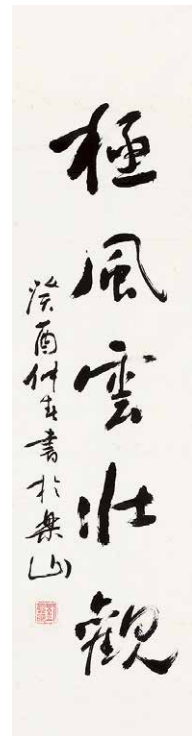 極風雲壯觀
癸酉仲春書於樂山